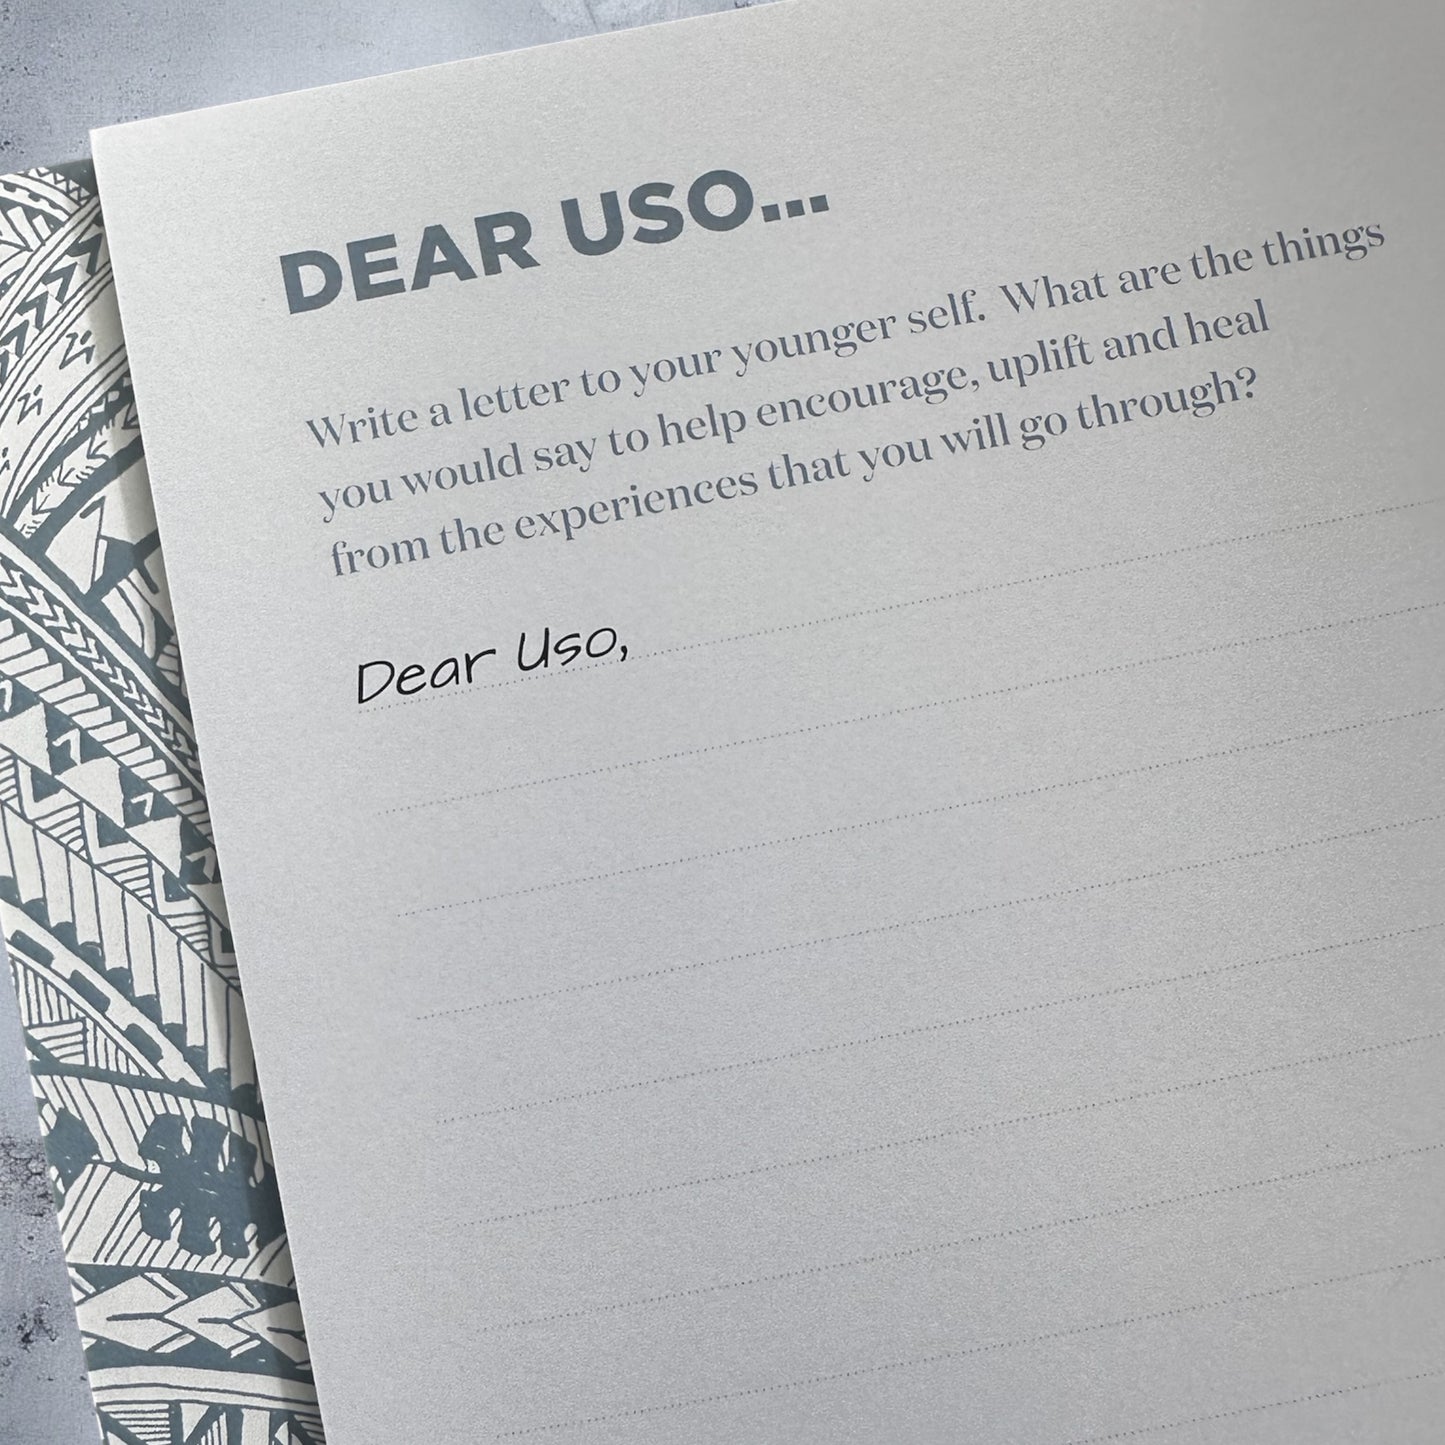 DEAR USO...
Write a letter to your younger self. What are the things
you would say to help encourage, uplift and heal
from the experiences that you will go through?
Dear Uso,